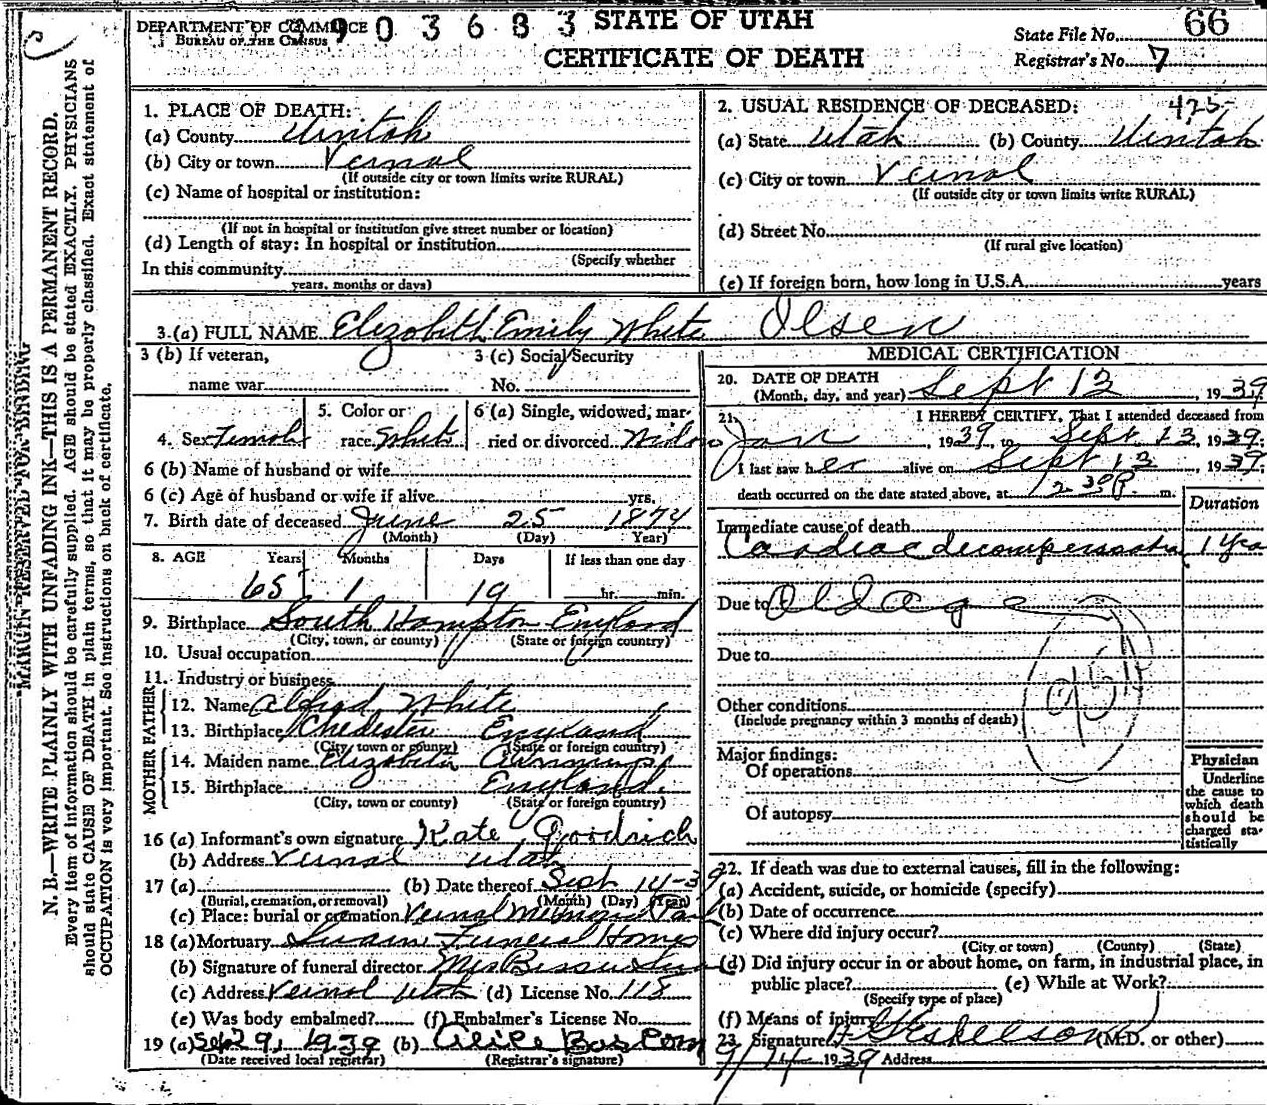 DEPARTMENT OF COMMERCE
BUREAU OF THE CENSUS
903683
STATE OF UTAH
CERTIFICATE OF DEATH
State File No. 66
Registrar's No. 7
MARGIN RESERVED FOR BINDING
N. B.—WRITE PLAINLY WITH UNFADING INK—THIS IS A PERMANENT RECORD.
Every item of information should be carefully supplied. AGE should be stated EXACTLY. PHYSICIANS
should state CAUSE OF DEATH in plain terms, so that it may be properly classified. Exact statement of
OCCUPATION is very important. See instructions on back of certificate.
1. PLACE OF DEATH:
(a) County Uintah
(b) City or town Vernal
(If outside city or town limits write RURAL)
(c) Name of hospital or institution:
(If not in hospital or institution give street number or location)
(d) Length of stay: In hospital or institution
(Specify whether
In this community
years, months or days)
2. USUAL RESIDENCE OF DECEASED: 425-
(a) State Utah (b) County Uintah
(c) City or town Vernal
(If outside city or town limits write RURAL)
(d) Street No.
(If rural give location)
(e) If foreign born, how long in U.S.A. years
3.(a) FULL NAME Elizabeth Emily White Olsen
3 (b) If veteran, 3 (c) Social Security
name war No.
4. Sex Female
5. Color or
race White
6 (a) Single, widowed, mar-
ried or divorced Widow
6 (b) Name of husband or wife
6 (c) Age of husband or wife if alive yrs.
7. Birth date of deceased June 25 1874
(Month) (Day) (Year)
8. AGE Years Months Days If less than one day
65 1 19 hr. min.
9. Birthplace South Hampton England
(City, town, or county) (State or foreign country)
10. Usual occupation
11. Industry or business
FATHER
12. Name Alfred White
13. Birthplace Chedester England
(City, town or county) (State or foreign country)
MOTHER
14. Maiden name Elizabeth
15. Birthplace England
(City, town or county) (State or foreign country)
16 (a) Informant's own signature Kate Goodrich
(b) Address Vernal Utah
17 (a) (b) Date thereof Sept 14-39
(Burial, cremation, or removal) (Month) (Day) (Year)
(c) Place: burial or cremation Vernal Memorial Park
18 (a) Mortuary Swain Funeral Homes
(b) Signature of funeral director Mrs Bessie Swain
(c) Address Vernal Utah (d) License No. 118
(e) Was body embalmed? (f) Embalmer's License No.
19 (a) Sept 29, 1939 (b) Alice Bascom
(Date received local registrar) (Registrar's signature)
MEDICAL CERTIFICATION
20. DATE OF DEATH
(Month, day, and year) Sept 13, 1939
21. I HEREBY CERTIFY, That I attended deceased from
Jan, 1939, to Sept 13, 1939;
I last saw her alive on Sept 13, 1939;
death occurred on the date stated above, at 12 30 P. m.
Duration
Immediate cause of death
Cardiac decompensation 1 year
Due to Old age
Due to
Other conditions
(Include pregnancy within 3 months of death)
Major findings:
Of operations
Of autopsy
Physician
Underline
the cause to
which death
should be
charged sta-
tistically
22. If death was due to external causes, fill in the following:
(a) Accident, suicide, or homicide (specify)
(b) Date of occurrence
(c) Where did injury occur?
(City or town) (County) (State)
(d) Did injury occur in or about home, on farm, in industrial place, in
public place? (e) While at Work?
(Specify type of place)
(f) Means of injury
23. Signature (M.D. or other)
9/14 1939 Address